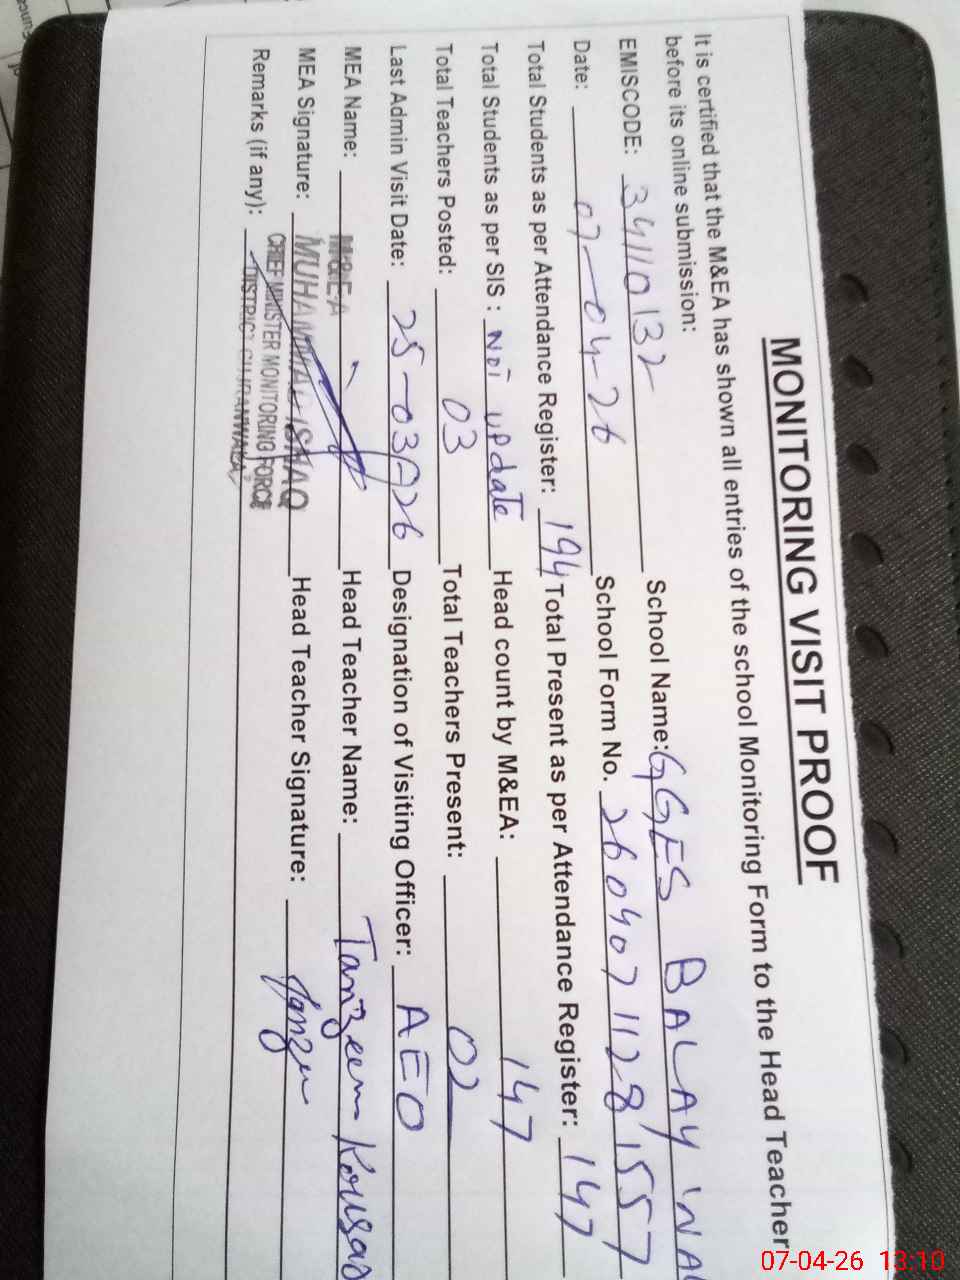 MONITORING VISIT PROOF
It is certified that the M&EA has shown all entries of the school Monitoring Form to the Head Teacher
before its online submission:
EMISCODE: 34110132 School Name: GGES BALAY WA
Date: 07-04-26 School Form No. 2604071128157
Total Students as per Attendance Register: 194 Total Present as per Attendance Register: 147
Total Students as per SIS : Not update Head count by M&EA: 147
Total Teachers Posted: 03 Total Teachers Present: 02
Last Admin Visit Date: 25-03-26 Designation of Visiting Officer: AEO
MEA Name: M&EA Head Teacher Name: Tanzeem Kousar
MEA Signature: MUHAMMAD ISHAQ Head Teacher Signature:
CHIEF MINISTER MONITORING FORCE
Remarks (if any): DISTRICT GUJRANWALA
07-04-26 13:10